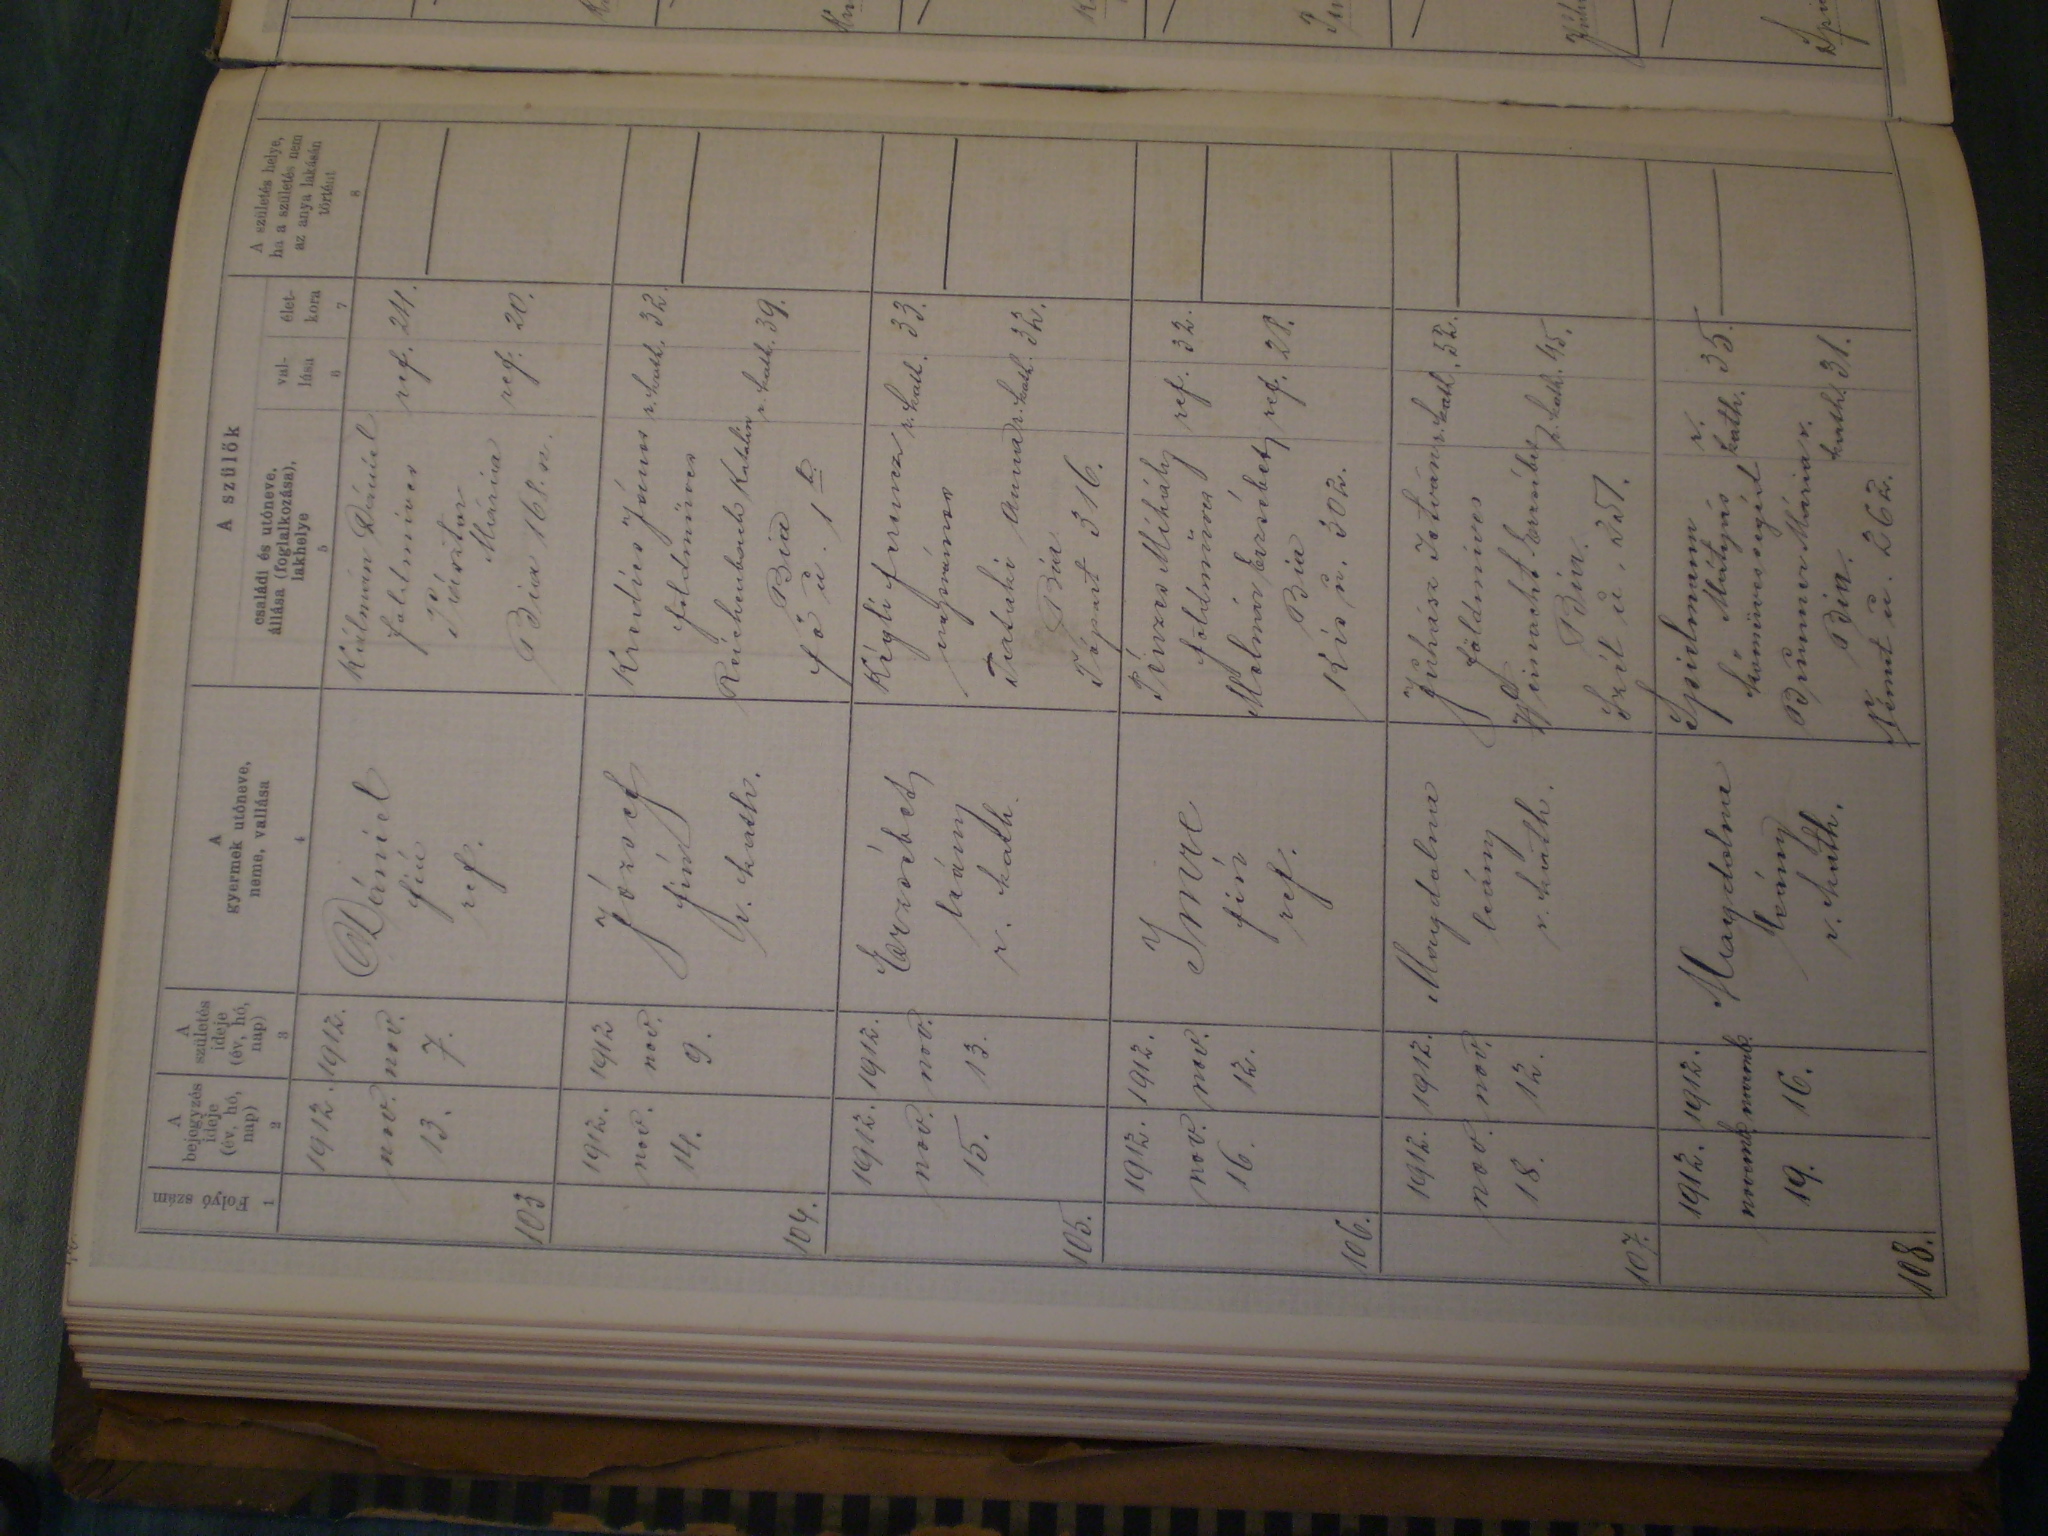 Folyó szám
1
A
bejegyzés
ideje
(év, hó,
nap)
2
A
születés
ideje
(év, hó,
nap)
3
A
gyermek utóneve,
neme, vallása
4
A szülők
családi és utóneve,
állása (foglalkozása),
lakhelye
5
val-
lása
6
élet-
kora
7
A születés helye,
ha a születés nem
az anya lakásán
történt
8
103
1912.
nov.
13.
1912.
nov.
7.
Dániel
fiú
ref.
Kálmán Dániel
földmives
Mária
Bia 168. n.
ref. 24.
ref. 20.
104.
1912.
nov.
14.
1912
nov.
9.
József
fiú
r. kath.
János
földmüves
Katalin
Bia
Fő u. 1
r. kath. 32.
r. kath. 39.
105.
1912.
nov.
15.
1912.
nov.
13.
Erzsébet
leány
r. kath.
Kégli Ferencz
napszámos
Anna
Bia
316.
r. kath. 33.
r. kath. 32.
106.
1912.
nov.
16.
1912.
nov.
12.
Imre
fiú
ref.
Pénzes Mihály
földmüves
Molnár Erzsébet
Bia
Kis u. 302.
ref. 32.
ref. 28.
107.
1912.
nov.
18.
1912.
nov.
12.
Magdolna
leány
r. kath.
Juhász István
földmives
Erzsébet
Bia.
r. kath. 52.
r. kath. 45.
108.
1912.
novemb.
19.
1912.
novemb.
16.
Magdolna
leány
r. kath.
Spielmann
Mátyás
kőmüvessegéd
Mária
Bia.
Német u. 262.
r.
kath. 35.
r.
kath. 31.